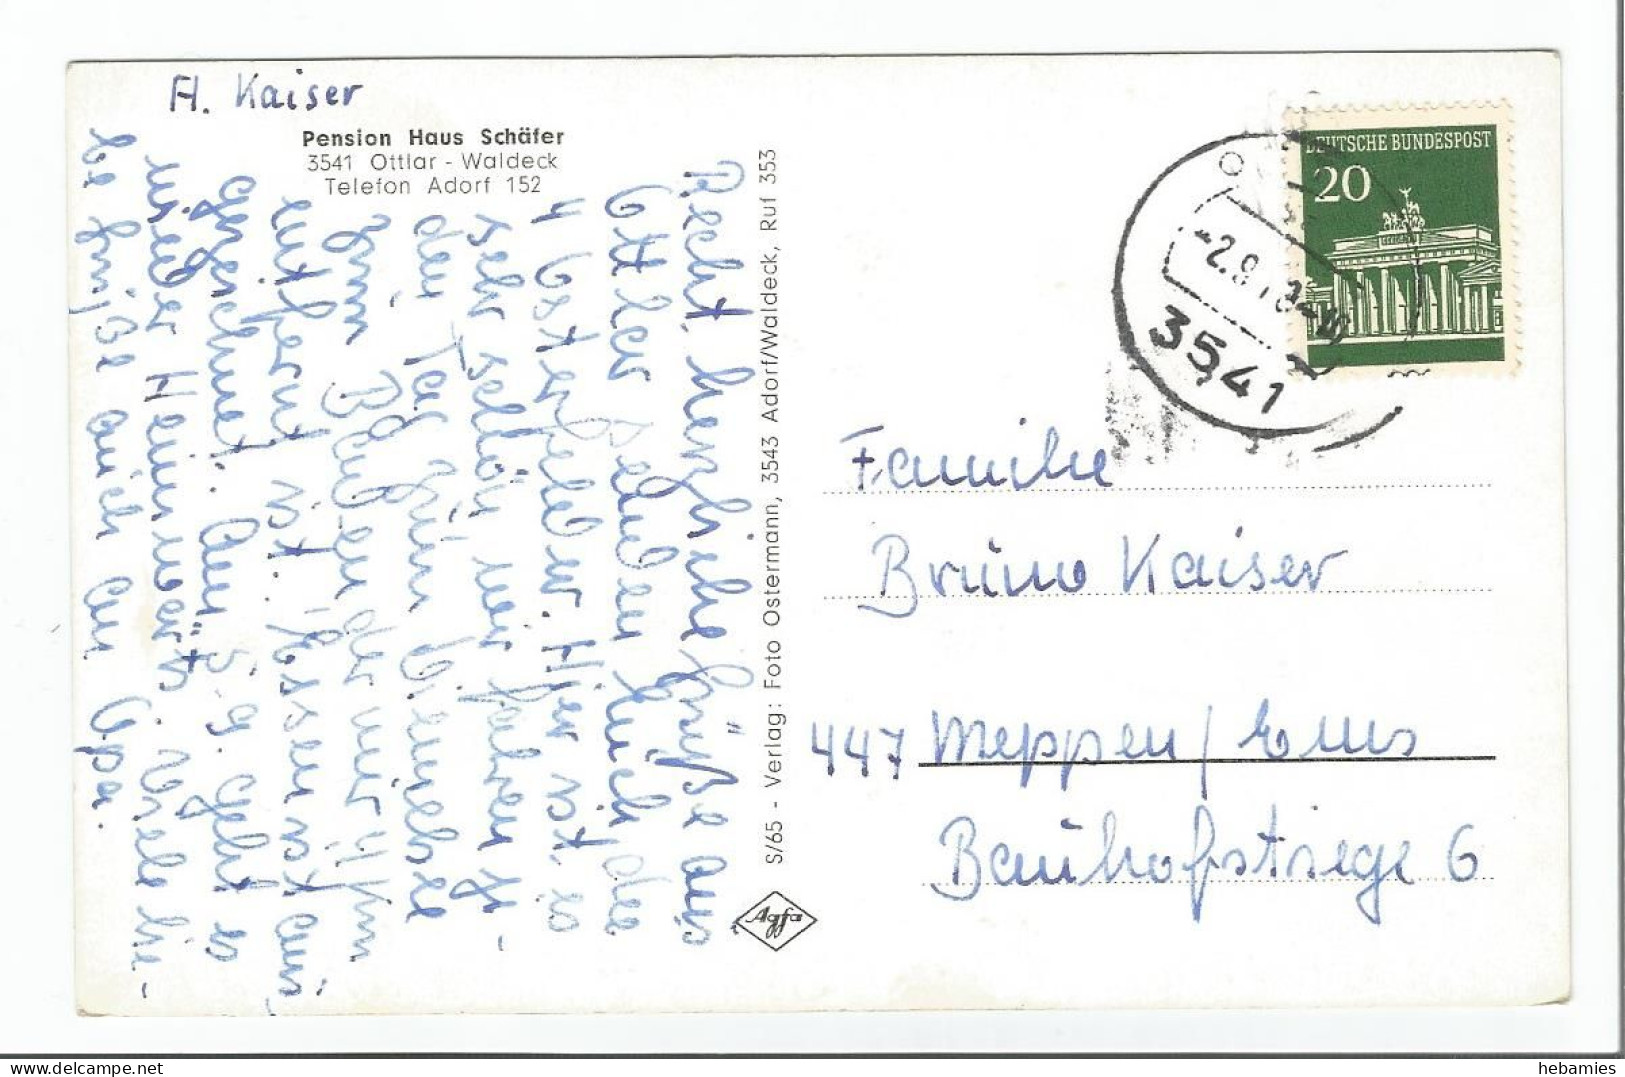 A. Kaiser
Pension Haus Schäfer
3541 Ottlar - Waldeck
Telefon Adorf 152
Recht herzliche Grüße aus
Ottlar senden Euch die
4 Osterfelder. Hier ist es
sehr schön wir fahren j-
den Tag zum
zum Baden der nur 4 km
entfernt ist. Essen ist aus
gezeichnet. Am 5.9. geht es
wieder Heimwärts. Viele lie-
be Grüße auch an Opa.
S/65 - Verlag: Foto Ostermann, 3543 Adorf/Waldeck, Ruf 353
Agfa
DEUTSCHE BUNDESPOST
20
-2.9.
3541
Familie
Bruno Kaiser
447 Meppen / Ems
Bauhofstiege 6
hebamies